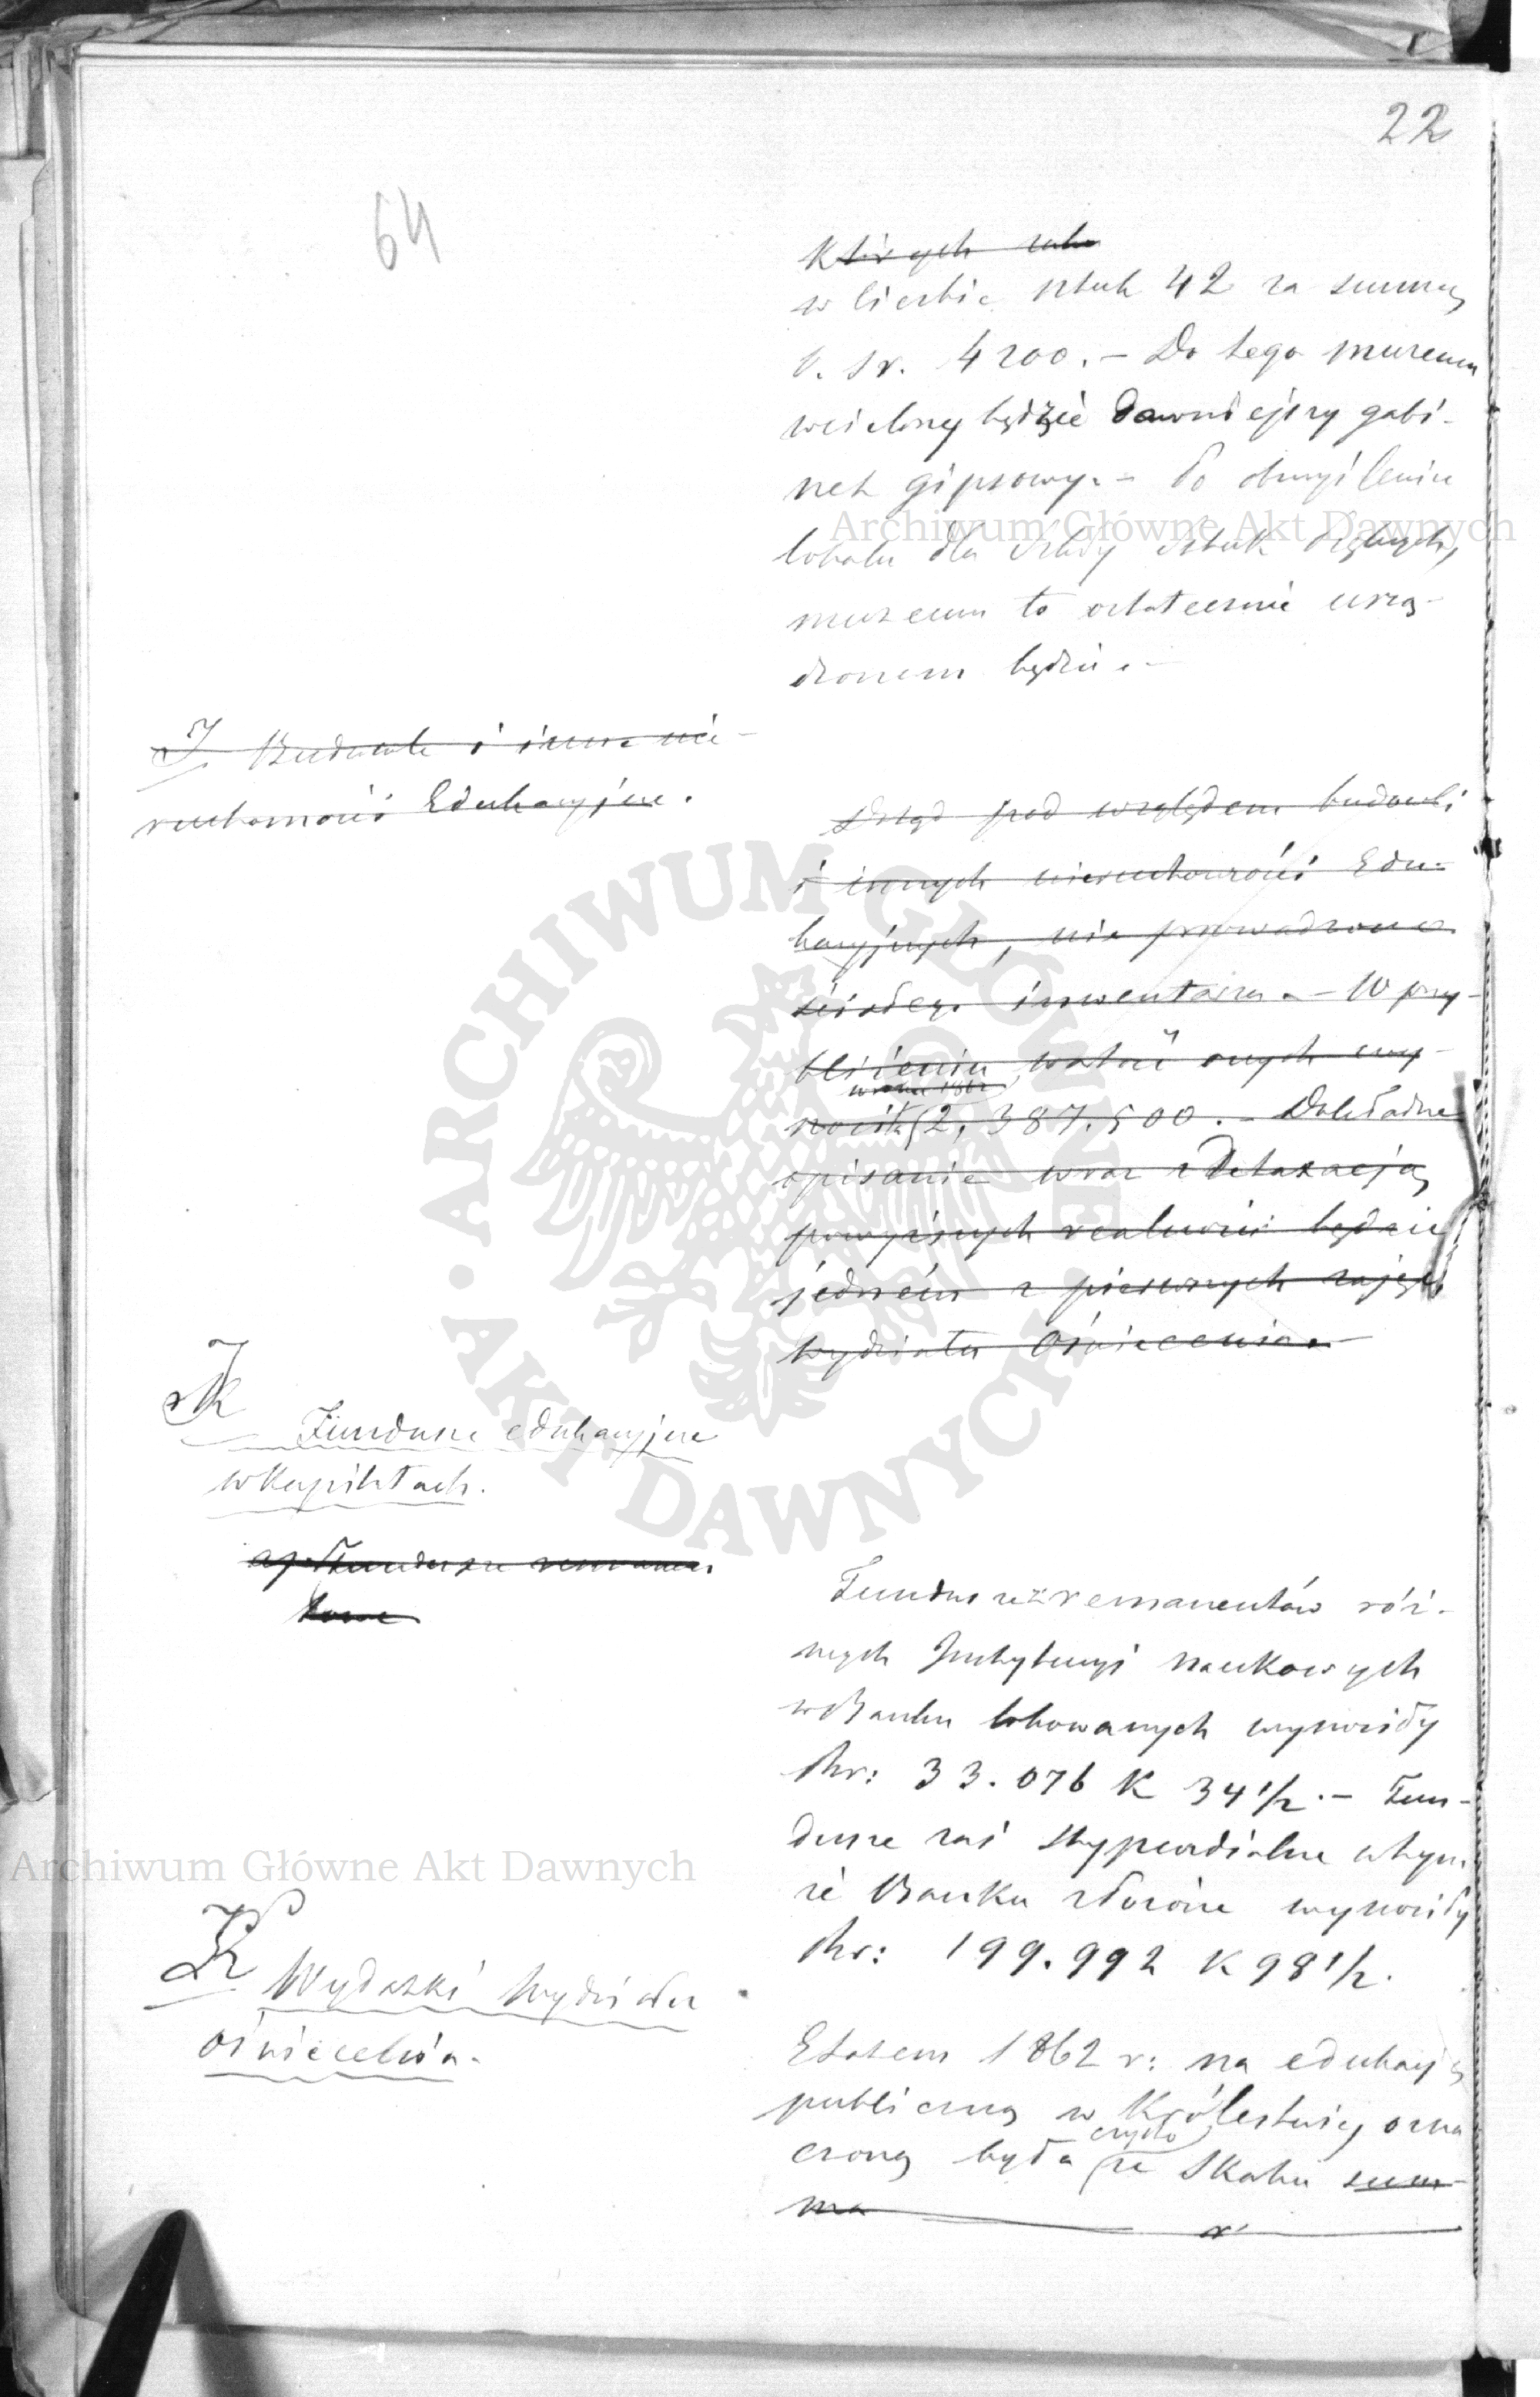 22
64
których
w liczbie sztuk 42 za summę
r. sr. 4200. – Do tego muzeum
wcielony będzie dawniejszy gabi-
net gipsowy. – Po obmyśleniu
lokalu dla szkoły sztuk pięknych,
muzeum to ostatecznie urzą-
dzonem będzie. –
I Budowle i inne nie-
ruchomości Edukacyjne.
Dotąd pod względem budowli
i innych nieruchomości Edu-
kacyjnych, nie prowadzono
ścisłego inwentarza. – W przy-
bliżeniu wartość onych wy-
w roku 1862
nosiła 2,387,500. – Dokładne
opisanie wraz z detaxacją
powyższych realności będzie
jedném z pierwszych zajęć
wydziału Oświecenia. –
K
Fundusze edukacyjne
w Kapitałach.
a, Fundusze remanen-
towe
Fundusze z remanentów róż-
nych Instytucyi naukowych
w Banku lokowanych wynosiły
Rsr: 33.076 K 34 1/2. – Fun-
dusze zaś stypendialne w tym-
że Banku złożone wynosiły
Rsr: 199.992 K 98 1/2.
Wydatki Wydziału
Oświecenia.
Etatem 1862 r: na edukacyę
publiczną w Królestwie, ozna
czysto
czoną była ze Skarbu sum-
ma
Archiwum Główne Akt Dawnych
ARCHIWUM GŁÓWNE AKT DAWNYCH
Archiwum Główne Akt Dawnych